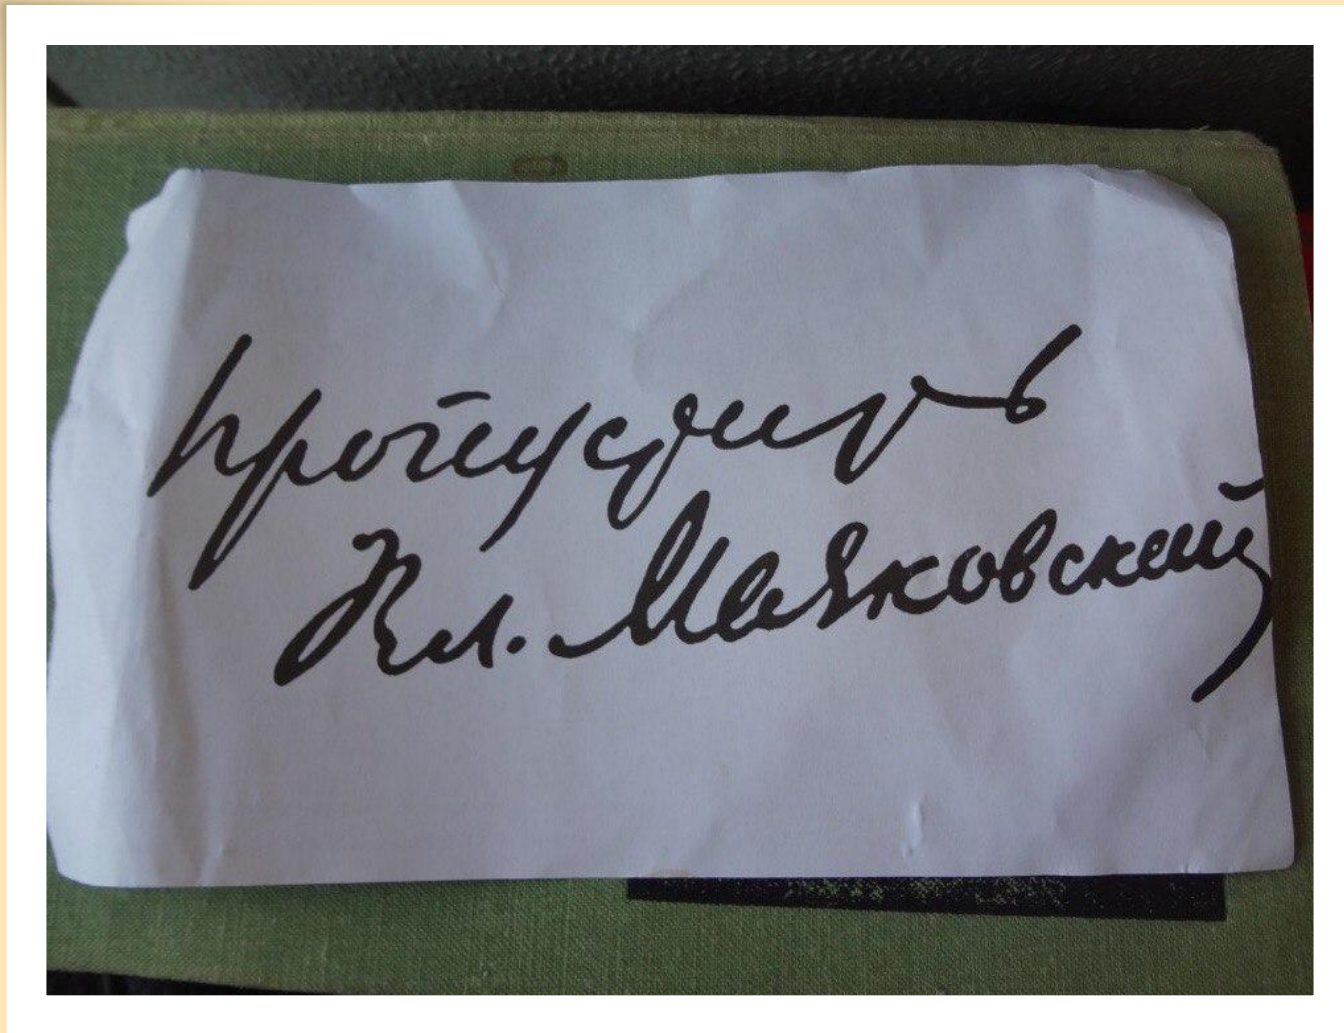 пропустить
Вл. Маяковский